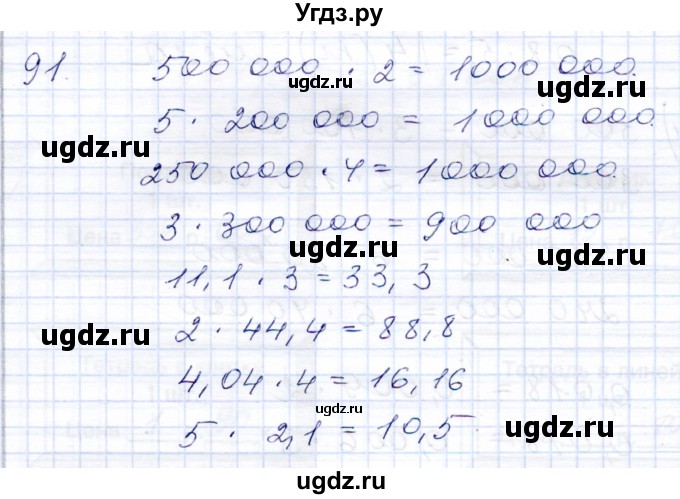 Угдз.ру
91. 500 000 · 2 = 1000 000.
ugdz.ru
5 · 200 000 = 1000 000.
ugdz.ru ugdz.ru
250 000 · 4 = 1000 000.
3 · 300 000 = 900 000
ugdz.ru ugdz.ru
11,1 · 3 = 33,3
2 · 44,4 = 88,8
ugdz.ru ugdz.ru
4,04 · 4 = 16,16
ugdz.ru
5 · 2,1 = 10,5
ugdz.ru
Угдз.ру